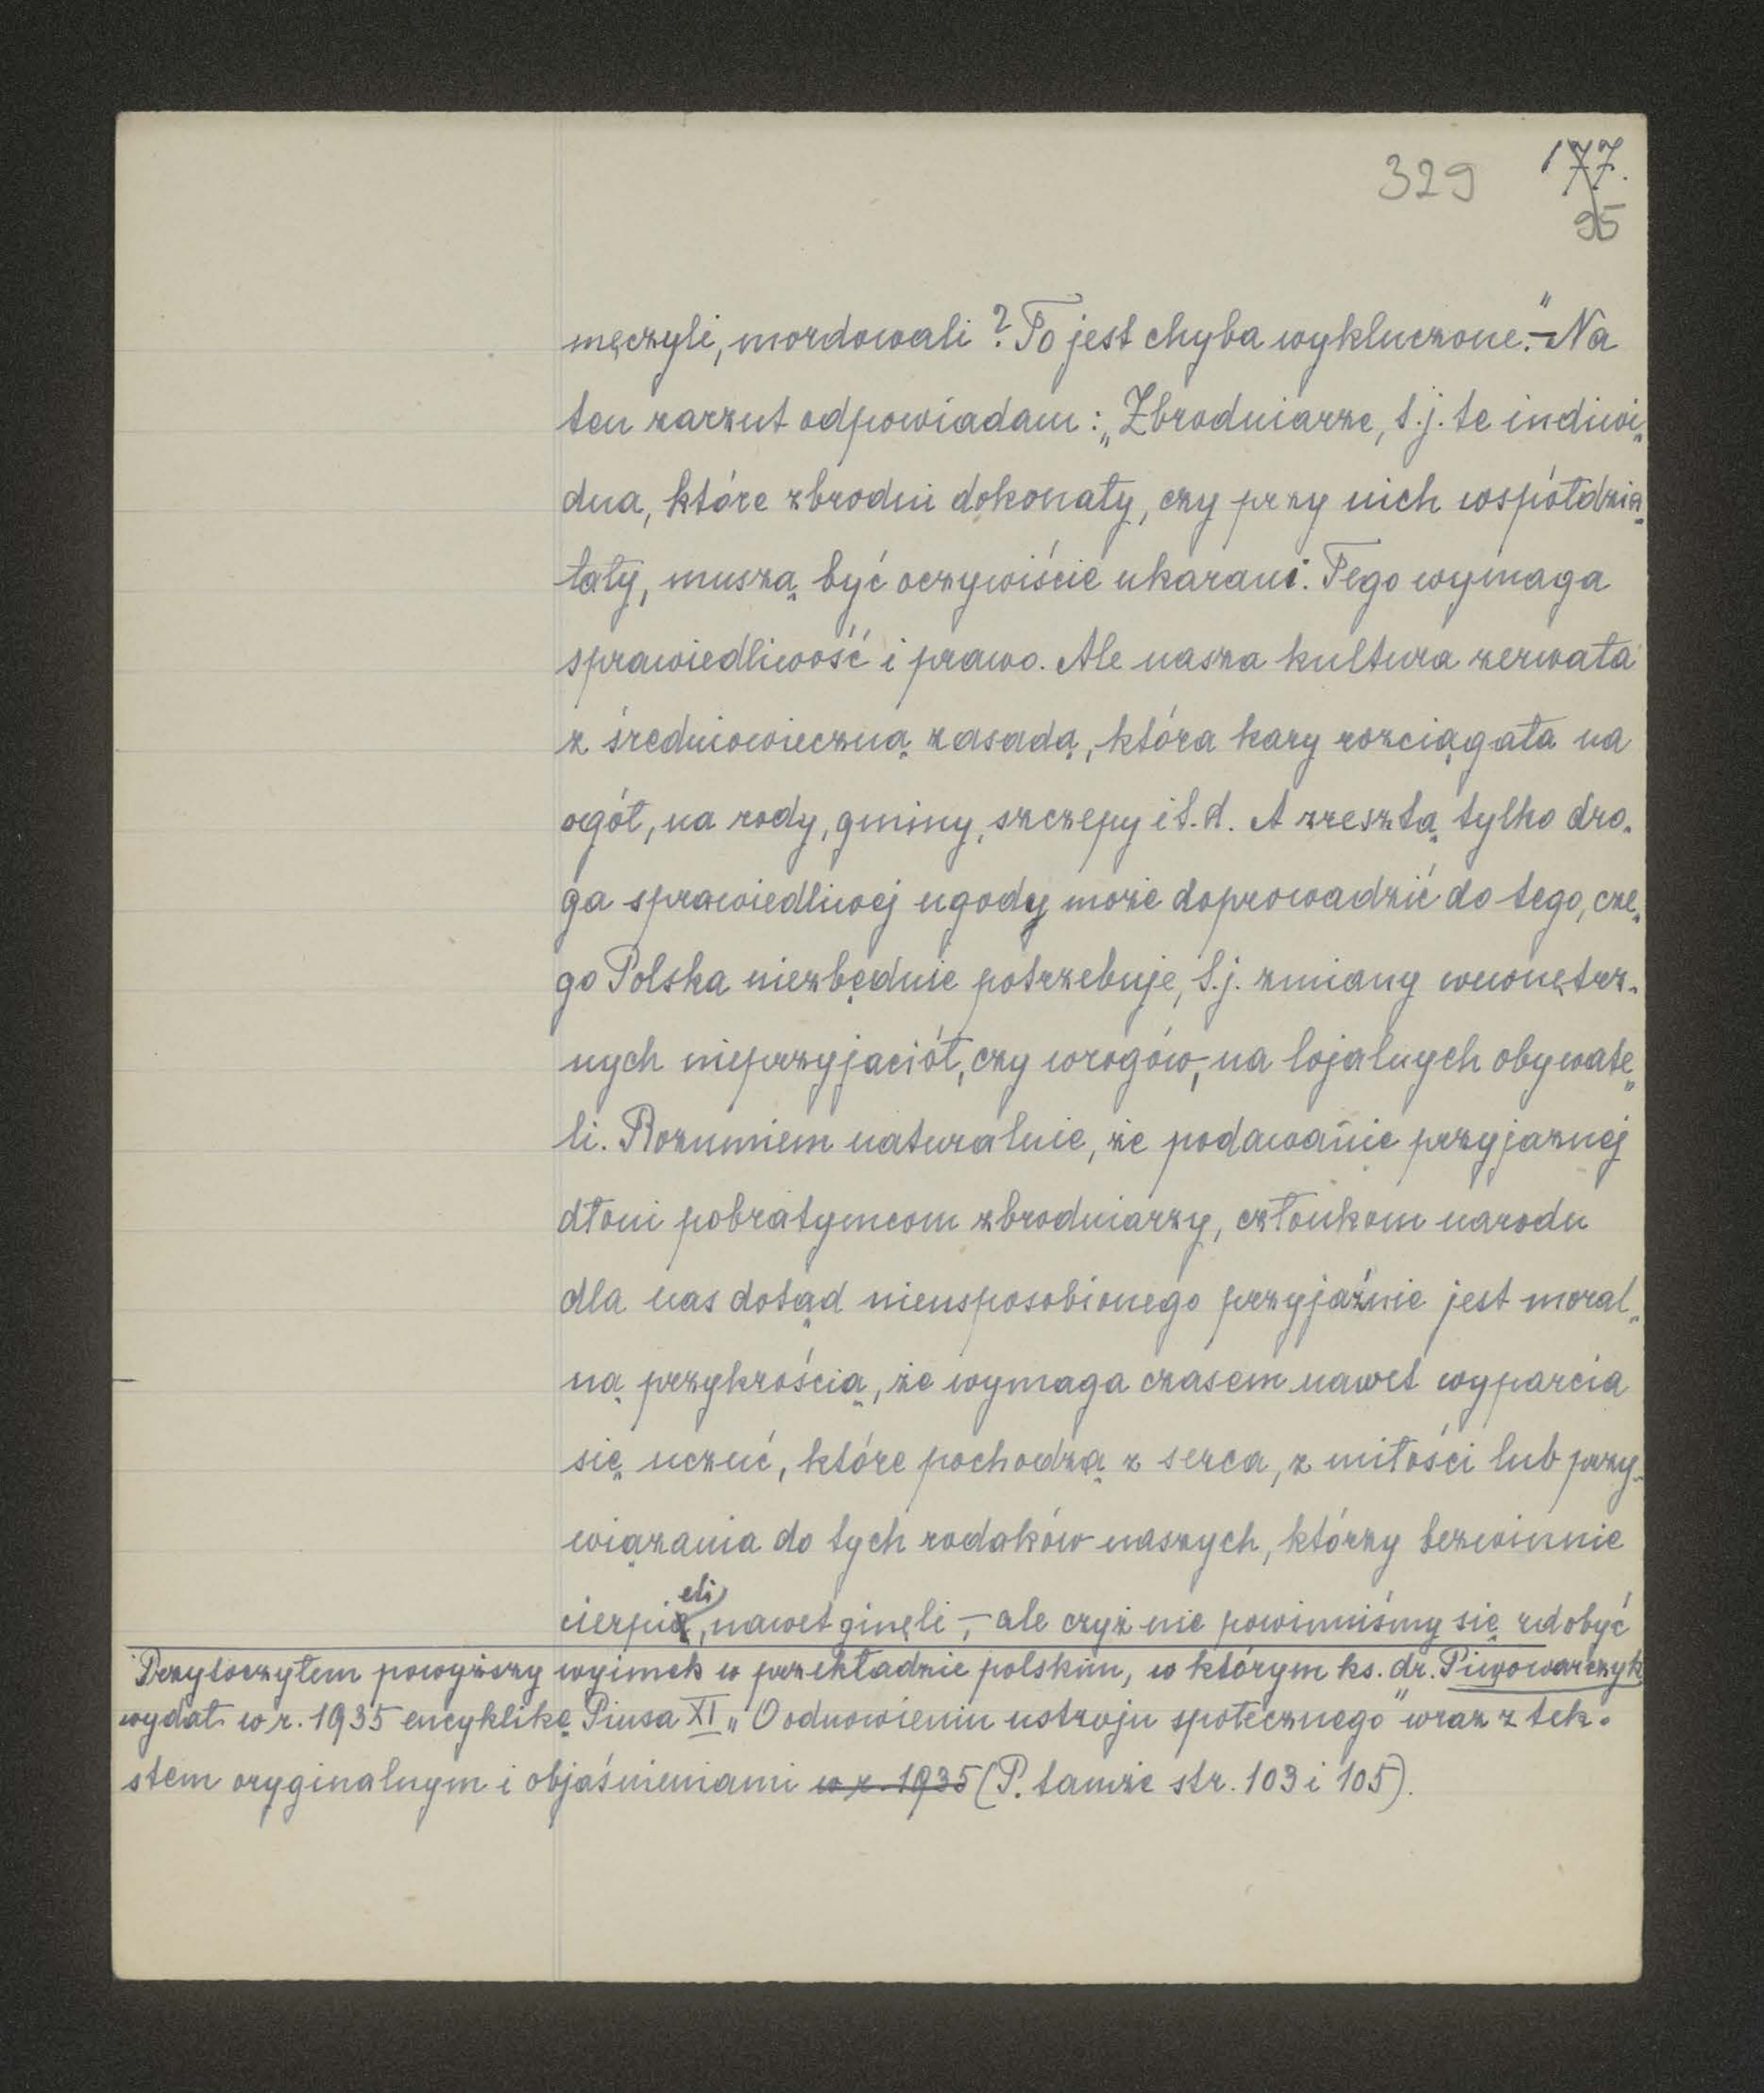 329 177.
95
męczyli, mordowali? To jest chyba wykluczone." – Na
ten zarzut odpowiadam: „Zbrodniarze, t.j. te indiwi„
dua, które zbrodni dokonały, czy przy nich współdzia„
łały, muszą być oczywiście ukarani. Tego wymaga
sprawiedliwość i prawo. Ale nasza kultura zerwała
z średniowieczną zasadą, która kary rozciągała na
ogół, na rody, gminy, szczepy i t.d. A zresztą tylko dro„
ga sprawiedliwej ugody może doprowadzić do tego, cze„
go Polska niezbędnie potrzebuje, t.j. zmiany wewnętrz„
nych nieprzyjaciół, czy wrogów, na lojalnych obywate„
li. Rozumiem naturalnie, że podawanie przyjaznej
dłoni pobratymcom zbrodniarzy, członkom narodu
dla nas dotąd nieusposobionego przyjaźnie jest moral„
ną przykrością, że wymaga czasem nawet wyparcia
się uczuć, które pochodzą z serca, z miłości lub przy„
wiązania do tych rodaków naszych, którzy bezwinnie
cierpieli, nawet ginęli, – ale czyż nie powinniśmy się zdobyć
Przytoczyłem powyższy wyimek w przekładzie polskim, w którym ks. dr. Piwowarczyk
wydał w r. 1935 encyklikę Piusa XI „O odnowieniu ustroju społecznego" wraz z tek„
stem oryginalnym i objaśnieniami w r. 1935 (P. tamże str. 103 i 105).